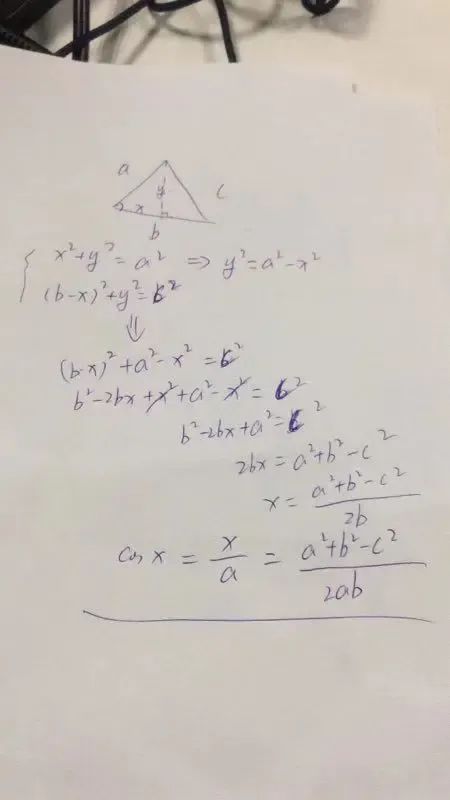 a
y
c
x
b
x²+y²=a² ⇒ y²=a²-x²
(b-x)²+y²=c²
⇓
(b-x)²+a²-x²=c²
b²-2bx+x²+a²-x²=c²
b²-2bx+a²=c²
2bx=a²+b²-c²
x=\frac{a²+b²-c²}{2b}
cos x = \frac{x}{a} = \frac{a²+b²-c²}{2ab}